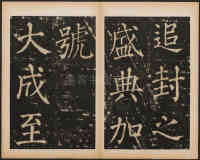 追封之
盛典加
號
大成至